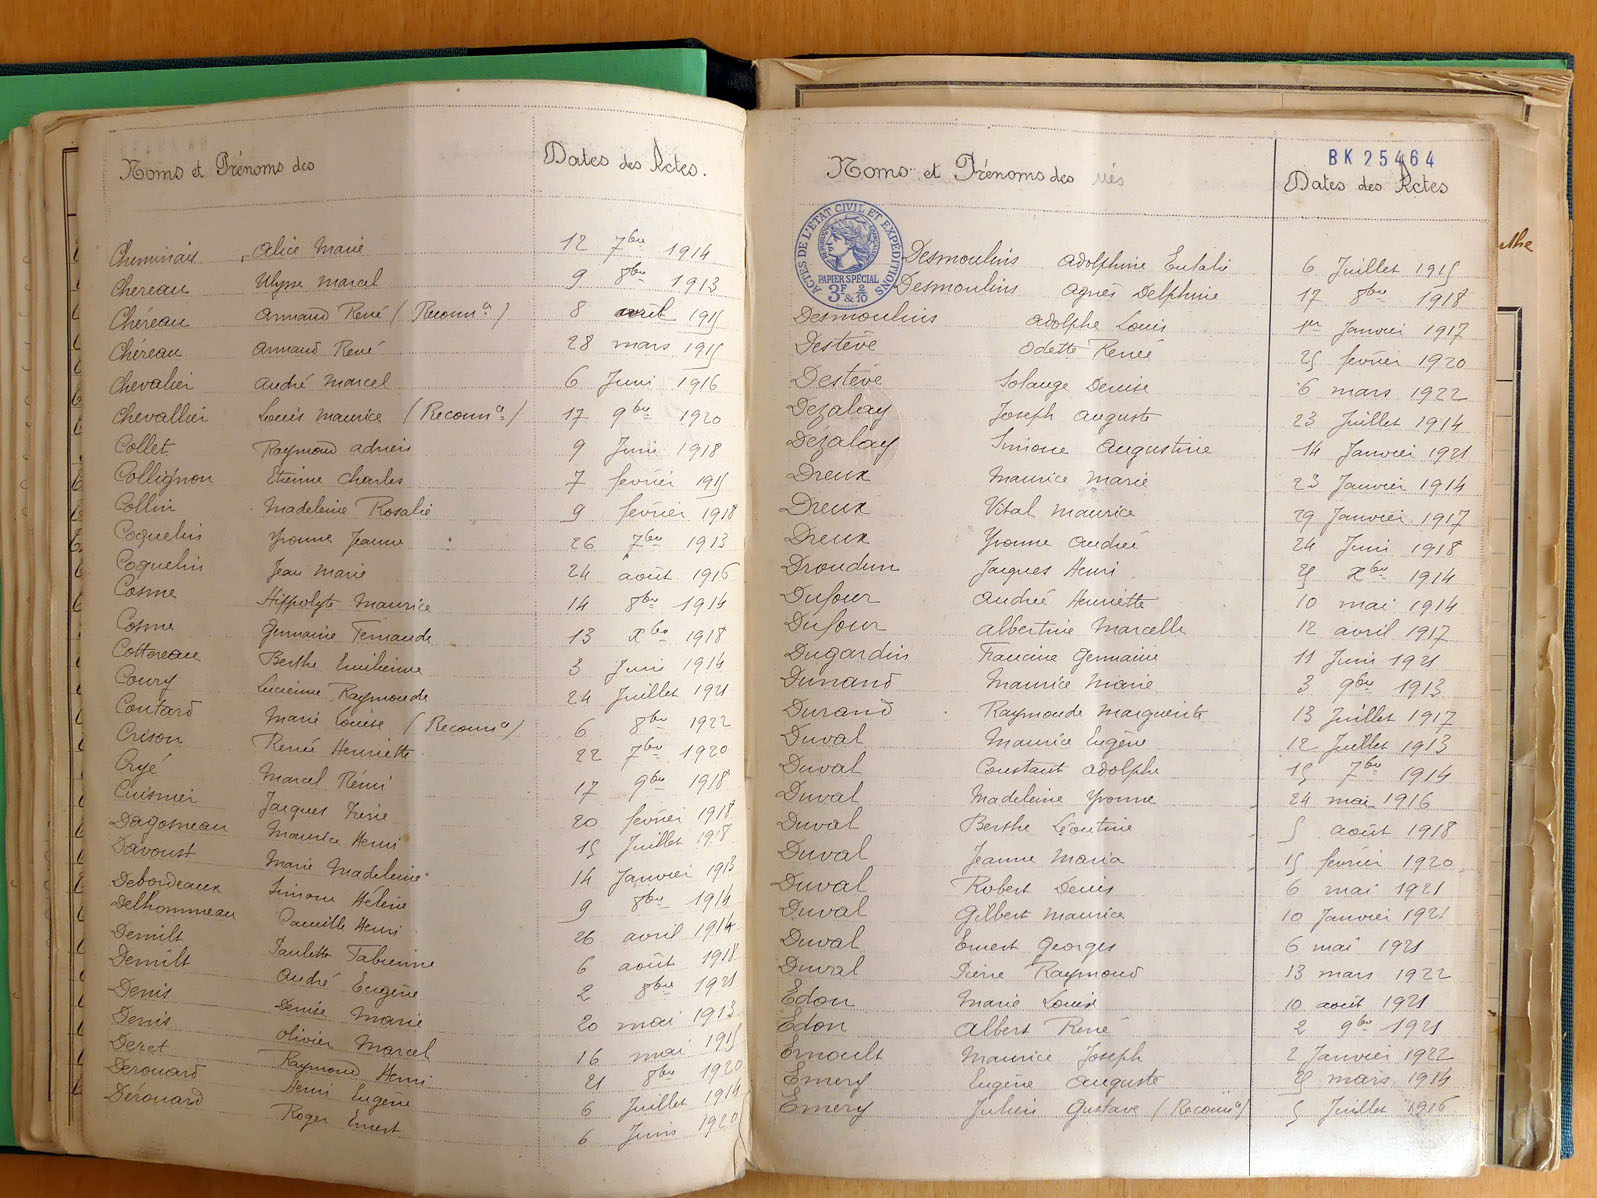 Noms et Prénoms des
Dates des Actes.
Cheminais Alice Marie 12 7bre 1914
Chereau Ulysse Marcel 9 8bre 1913
Chéreau Armand René (Reconnce) 8 avril 1915
Chéreau Armand René 28 mars 1915
Chevalier André Marcel 6 Juin 1916
Chevallier Louis Maurice (Reconnce) 17 9bre 1920
Collet Raymond Adrien 9 Juin 1918
Collignon Etienne Charles 7 février 1915
Collin Madeleine Rosalie 9 février 1918
Coquelin Yvonne Jeanne 26 7bre 1913
Coquelin Jean Marie 24 août 1916
Cosme Hippolyte Maurice 14 8bre 1914
Cosme Germaine Fernande 13 xbre 1918
Cottereau Berthe Emilienne 3 Juin 1914
Coury Lucienne Raymonde 24 Juillet 1921
Coutard Marie Louise (Reconnce) 6 8bre 1922
Crison Renée Henriette 22 7bre 1920
Cryé Marcel Rémi 17 9bre 1918
Cuisnier Jacques 20 février 1918
Dagosneau Maurice Henri 15 Juillet 1918
Davoust Marie Madeleine 14 Janvier 1913
Debordeaux Simone Hélène 9 8bre 1914
Delhommeau Camille Henri 26 avril 1914
Demilt Paulette Fabienne 6 août 1918
Demilt André Eugène 2 8bre 1921
Denis Denise Marie 20 mai 1913
Denis Olivier Marcel 16 mai 1915
Deret Raymond Henri 21 8bre 1920
Derouard Henri Eugène 6 Juillet 1914
Dérouard Roger Ernest 6 Juin 1920
BK 25464
Noms et Prénoms des nés
Dates des Actes
ACTES DE L'ÉTAT CIVIL ET EXPÉDITIONS
PAPIER SPÉCIAL
3F & 2/10
Desmoulins Adolphine Eulalie 6 Juillet 1915
Desmoulins Agnès Delphine 17 8bre 1918
Desmoulins Adolphe Louis 1er Janvier 1917
Destève Odette Renée 25 février 1920
Destève Solange Denise 6 mars 1922
Dezalay Joseph Auguste 23 Juillet 1914
Dézalay Simone Augustine 14 Janvier 1921
Dreux Maurice Marie 23 Janvier 1914
Dreux Vital Maurice 29 Janvier 1917
Dreux Yvonne Andrée 24 Juin 1918
Droudun Jacques Henri 25 xbre 1914
Dufour André Henriette 10 mai 1914
Dufour Albertine Marcelle 12 avril 1917
Dugardin Francine Germaine 11 Juin 1921
Dunand Maurice Marie 3 9bre 1913
Durand Raymonde Marguerite 13 Juillet 1917
Duval Maurice Eugène 12 Juillet 1913
Duval Constant Adolphe 15 7bre 1914
Duval Madeleine Yvonne 24 mai 1916
Duval Berthe Léontine 5 août 1918
Duval Jeanne Maria 15 février 1920
Duval Robert Denis 6 mai 1921
Duval Gilbert Maurice 10 Janvier 1921
Duval Ernest Georges 6 mai 1921
Duval Pierre Raymond 13 mars 1922
Edon Marie Louise 10 août 1921
Edon Albert René 2 9bre 1921
Emoult Maurice Joseph 2 Janvier 1922
Emery Eugène Auguste 25 mars 1914
Emery Julien Gustave (Reconnce) 5 Juillet 1916